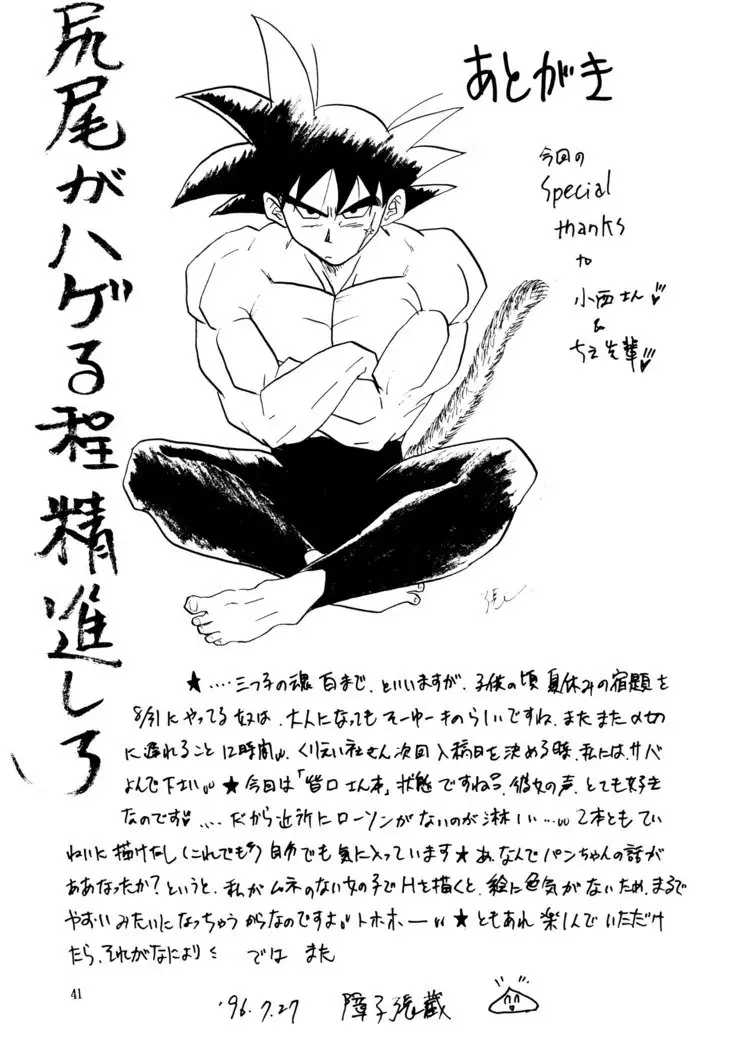 尻尾がハゲる程精進しろ
あとがき
今回の
Special
thanks
to
小西さん
&
ちえ先輩
★‥‥三つ子の魂百まで、といいますが、子供の頃夏休みの宿題を
8/31にやってる奴は、大人になってもそーゆーものらしいですね、またまた〆切
に遅れること12時間、くりえい社さん次回入稿日を決める時、私には、サバ
よんで下さい ★今日は「皆口さん本」状態ですね、彼女の声、とても好き
なのです‥‥だから近所にローソンがないのが淋しい…2本ともてい
ねいに描けたし(これでも)自分でも気に入っています★あ、なんでパンちゃんの話が
ああなったか?というと、私がムネのない女の子でHを描くと、絵に色気がないため、まるで
やおいみたいになっちゃうからなのですよ トホホー ★ともあれ楽しんでいただけ
たら、それがなにより では また
41
'96.7.27 障子張蔵